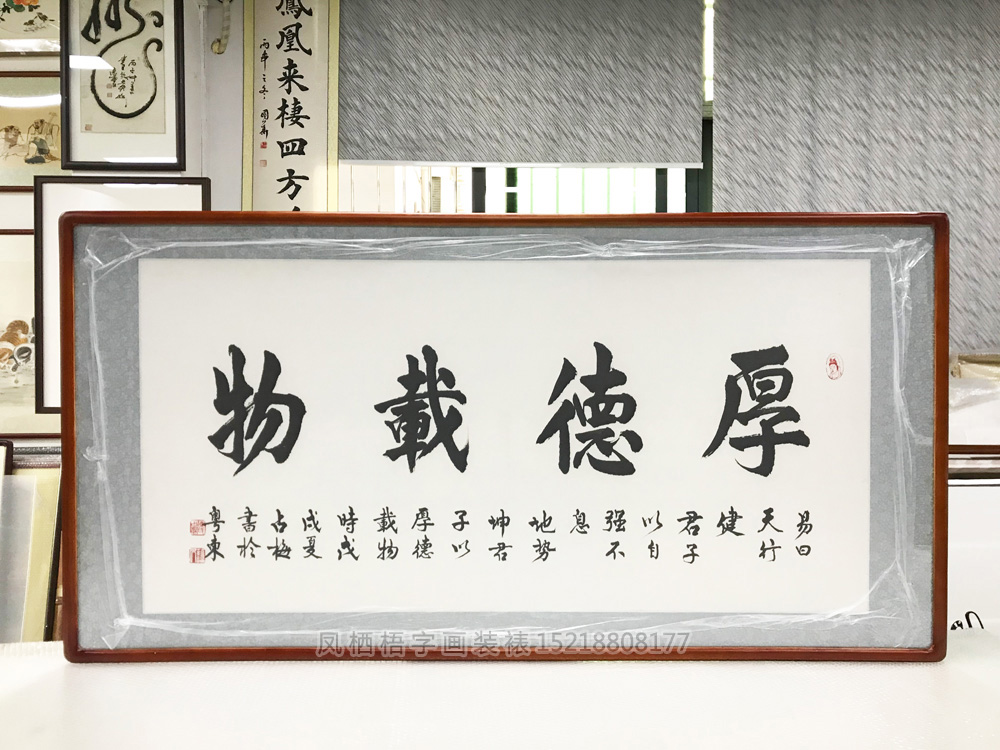 厚德載物
易曰
天行
健
君子
以自
强不
息
地势
坤君
子以
厚德
載物
時戊
戌夏
占梅
書於
粤東
鳳凰来棲四方
凤栖梧字画装裱15218808177